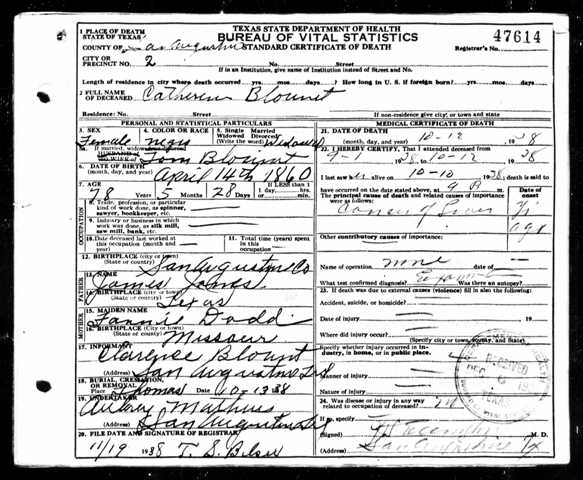 TEXAS STATE DEPARTMENT OF HEALTH
BUREAU OF VITAL STATISTICS
STANDARD CERTIFICATE OF DEATH
47614
1 PLACE OF DEATH
STATE OF TEXAS
COUNTY OF San Augustine Registrar's No.
CITY OR
PRECINCT NO. 2 No. Street
If in an Institution, give name of Institution instead of Street and No.
Length of residence in city where death occurred yrs. mos. days. How long in U. S. if foreign born? yrs. mos. days
2 FULL NAME
OF DECEASED Blount
Residence: No. Street If non-residence give city or town and state
PERSONAL AND STATISTICAL PARTICULARS
3. SEX 4. COLOR OR RACE 5. Single Married Widowed Divorced (Write the word)
Female negro Widowed
5a. If married, widowed
HUSBAND
(or) WIFE OF Tom Blount
6. DATE OF BIRTH
(month, day, and year) April 14th 1860
7. AGE Years Months Days If LESS than
1 day, hrs.
or min.
78 5 28
OCCUPATION
8. Trade, profession, or particular
kind of work done, as spinner,
sawyer, bookkeeper, etc.
9. Industry or business in which
work was done, as silk mill,
saw mill, bank, etc.
10. Date deceased last worked at
this occupation (month and
year)
11. Total time (years) spent in
this occupation
12. BIRTHPLACE (city or town)
(State or county) San Augustine Co
FATHER
13. NAME James Jones
14. BIRTHPLACE (City or town)
(State or country) Texas
MOTHER
15. MAIDEN NAME Fannie Dodd
16. BIRTHPLACE (City or town)
(State or country) Missouri
17. INFORMANT Clarence Blount
(Address) San Augustine
18. BURIAL, CREMATION,
OR REMOVAL
Place Thomas Date 10-13 38
19. UNDERTAKER Aubrey Mathews
(Address) San Augustine
20. FILE DATE AND SIGNATURE OF REGISTRAR
11/19 1938 T. S.
MEDICAL CERTIFICATE OF DEATH
21. DATE OF DEATH
(month, day, year) 10-12 1938
22. I HEREBY CERTIFY, That I attended deceased from
38, to 10-12 1938
I last saw alive on 10-10 1938, death is said to
have occurred on the date stated above, at 9
The principal cause of death and related causes of importance
were as follows:
Date of
onset
Cancer of
Other contributory causes of importance:
Name of operation none date of
What test confirmed diagnosis? Was there an autopsy?
23. If death was due to external causes (violence) fill in also the following:
Accident, suicide, or homicide?
Date of injury 19
Where did injury occur?
(Specify city or town, county, and State)
Specify whether injury occurred in
industry, in home, or in public place
Manner of injury
Nature of injury
24. Was disease or injury in any way
related to occupation of deceased?
If so, specify
(Signed) M. D.
(Address) San Augustine Tx
RECEIVED
DEC
TEXAS